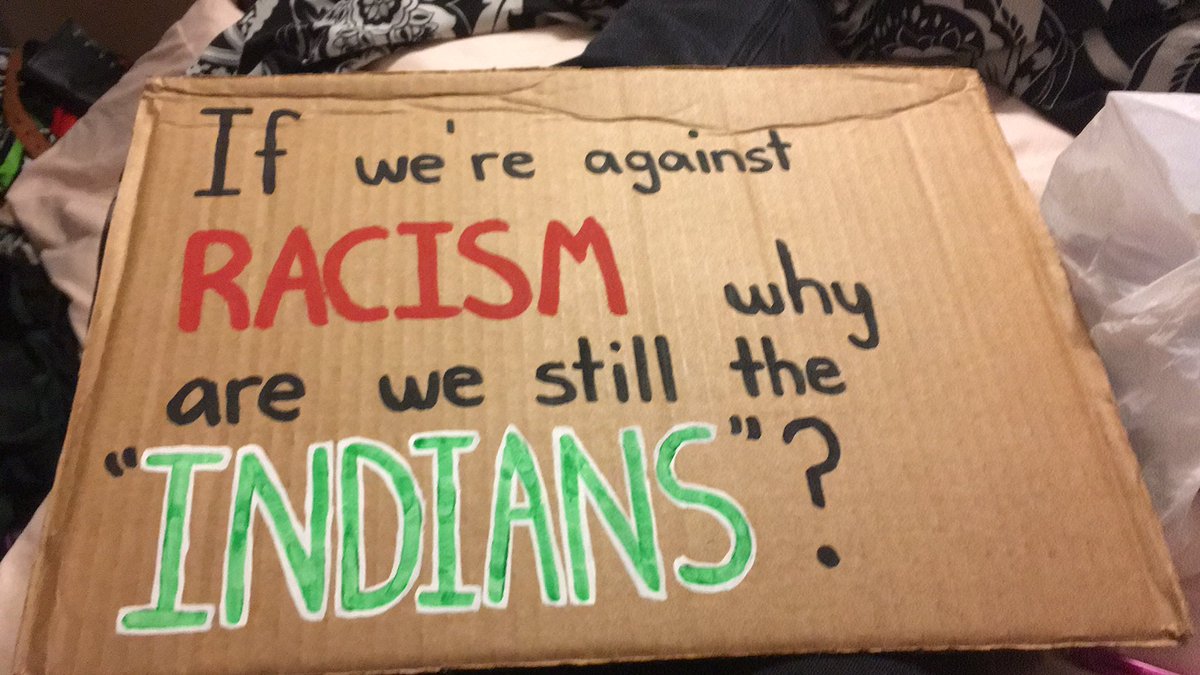 If we're against
RACISM why
are we still the
"INDIANS"?